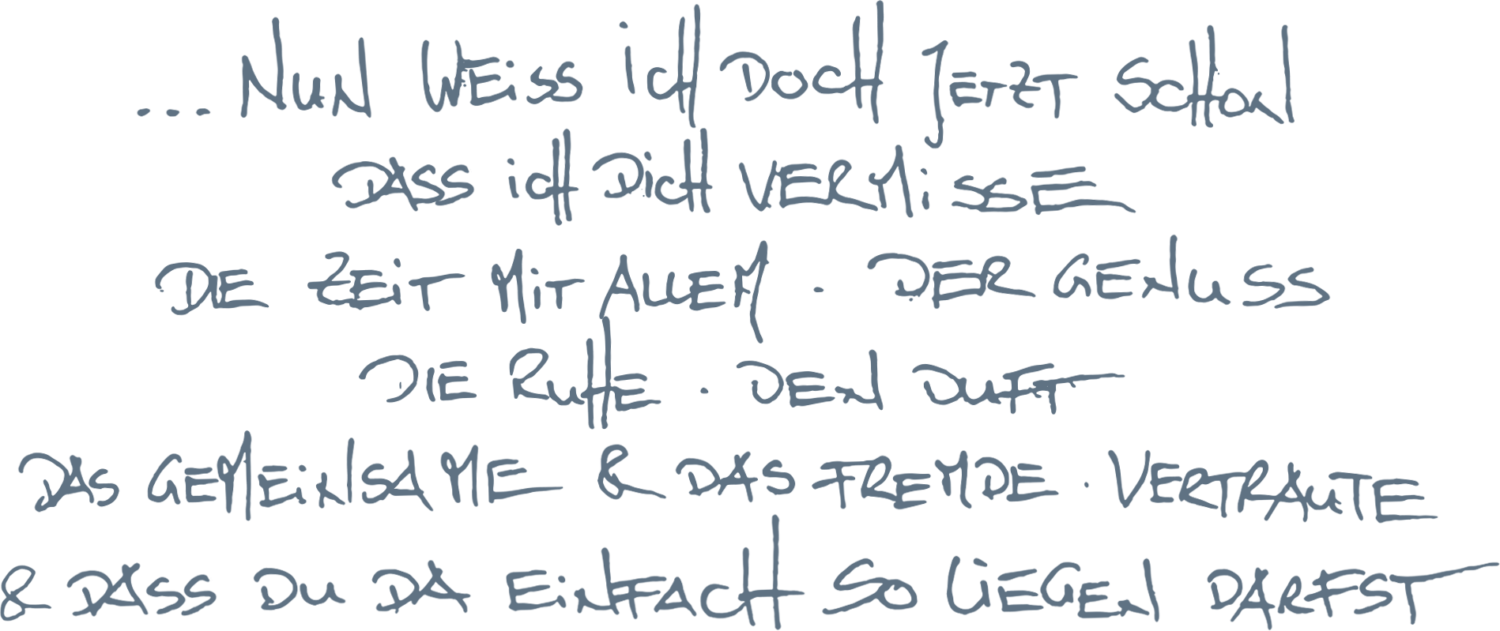 ... NUN WEISS ICH DOCH JETZT SCHON
DASS ICH DICH VERMISSE
DIE ZEIT MIT ALLEM · DER GENUSS
DIE RUHE · DEN DUFT
DAS GEMEINSAME & DAS FREMDE · VERTRAUTE
& DASS DU DA EINFACH SO LIEGEN DARFST